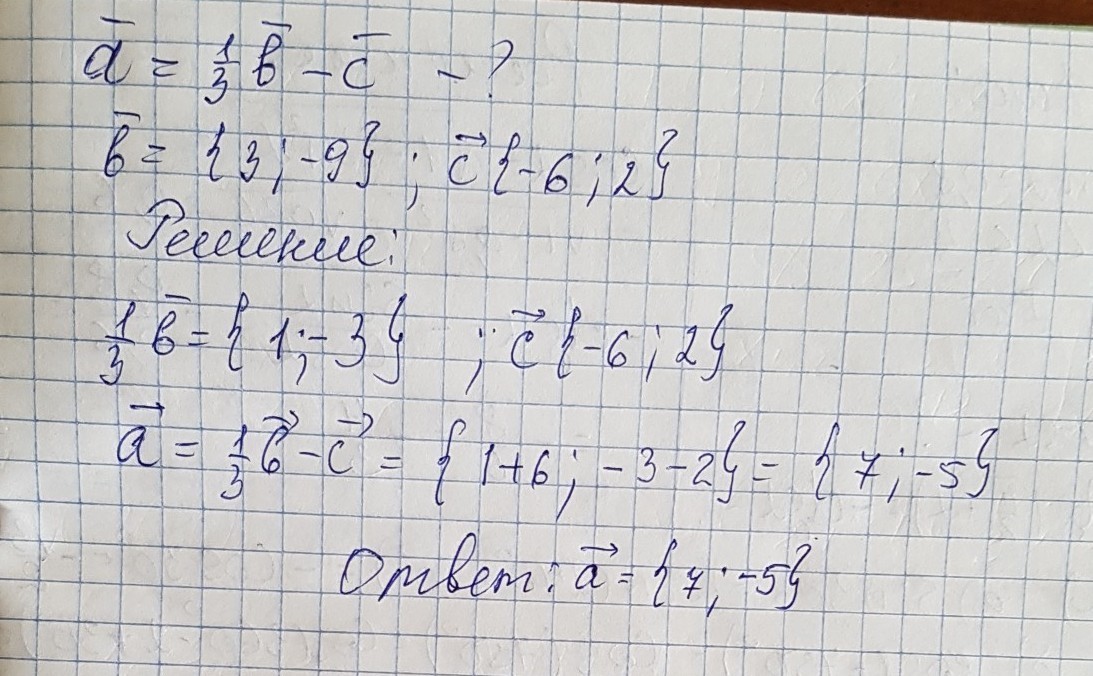 a̅ = 1/3 b̅ - c̅ - ?
b̅ = {3; -9}; c⃗ {-6; 2}
Решение:
1/3 b̅ = {1; -3} ; c⃗ {-6; 2}
a⃗ = 1/3 b⃗ - c⃗ = {1+6; -3-2} = {7; -5}
Ответ: a⃗ = {7; -5}